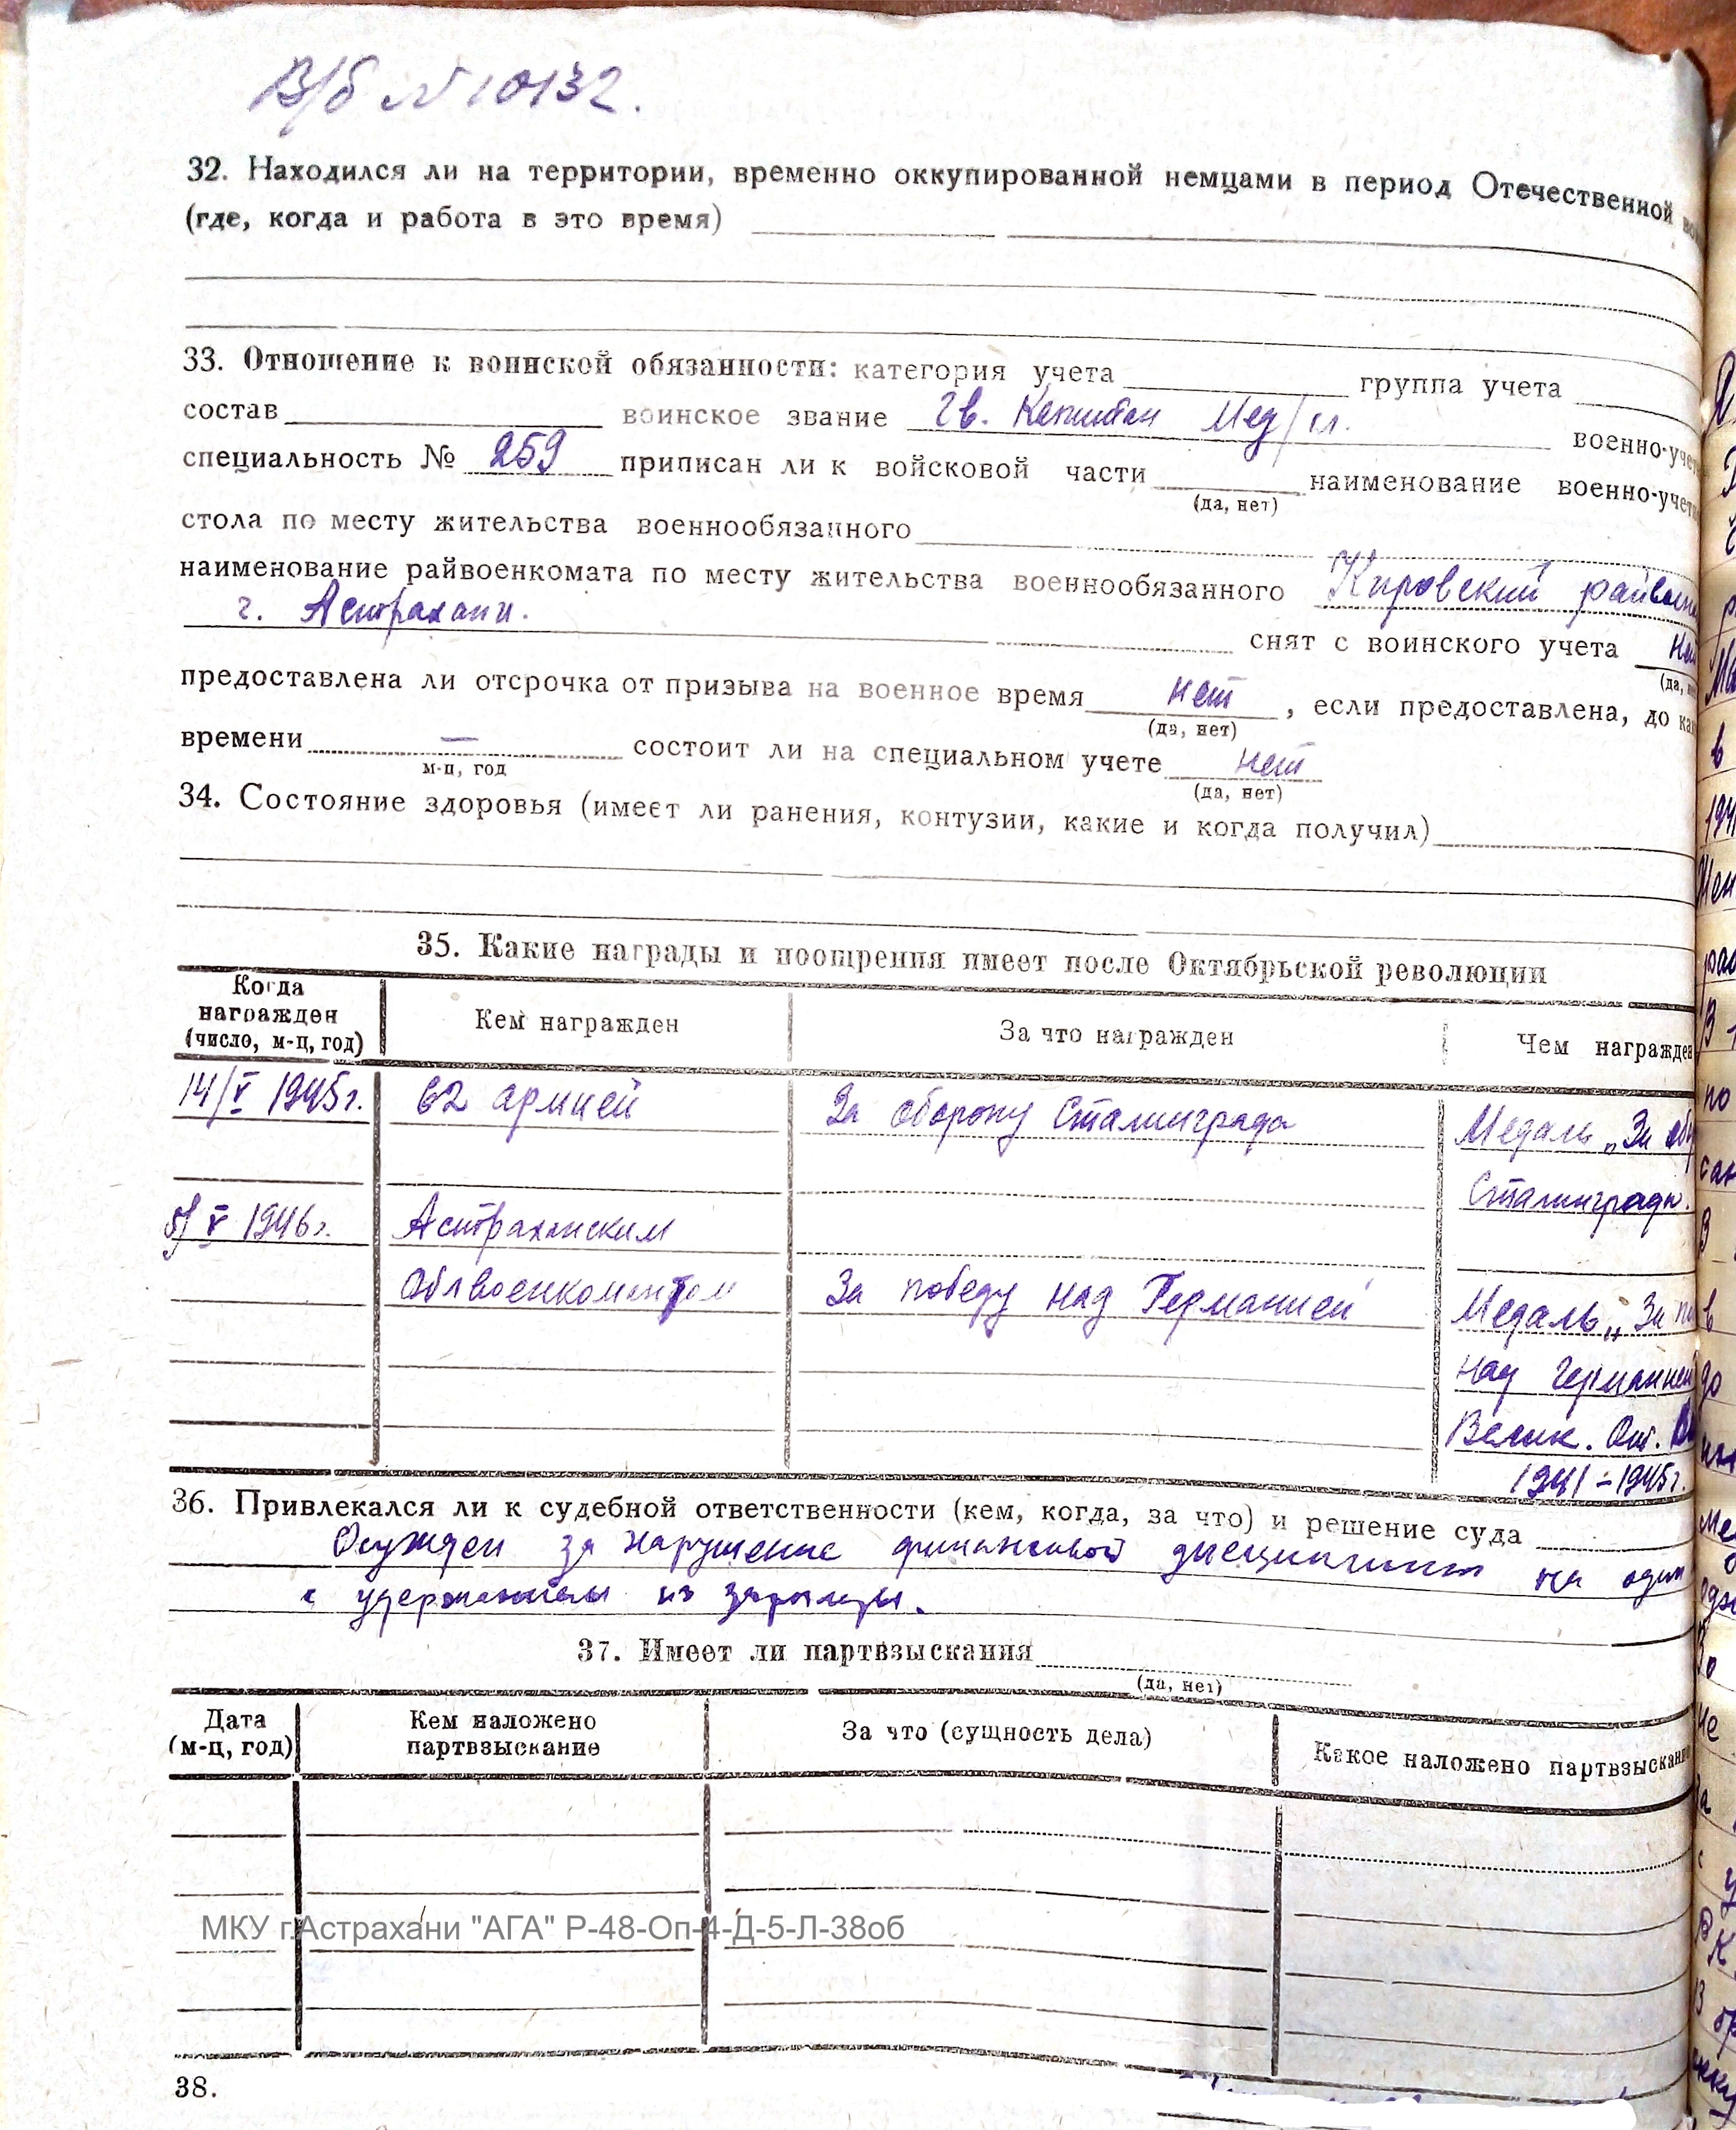 В/б № 10132.
32. Находился ли на территории, временно оккупированной немцами в период Отечественной
(где, когда и работа в это время)
33. Отношение к воинской обязанности: категория учета группа учета
состав воинское звание Гв. Капитан Мед/сл. военно-учет
специальность № 259 приписан ли к войсковой части наименование военно-учет
(да, нет)
стола по месту жительства военнообязанного
наименование райвоенкомата по месту жительства военнообязанного Кировский
г. Астрахани. снят с воинского учета
(да,
предоставлена ли отсрочка от призыва на военное время нет, если предоставлена, до
(да, нет)
времени — состоит ли на специальном учете нет
м-ц, год (да, нет)
34. Состояние здоровья (имеет ли ранения, контузии, какие и когда получил)
35. Какие награды и поощрения имеет после Октябрьской революции
Когда награжден (число, м-ц, год) Кем награжден За что награжден Чем награжден
14/V 1945г. 62 армией За оборону Сталинграда Медаль „За
Сталинграда.
V 1946г. Астраханским
Облвоенкоматом За победу над Германией Медаль „За
над Германией
Велик. От.
1941-1945г.
36. Привлекался ли к судебной ответственности (кем, когда, за что) и решение суда
Осужден за нарушение финансовой дисциплины на один
с удержанием из зарплаты.
37. Имеет ли партвзыскания
(да, нет)
Дата (м-ц, год) Кем наложено партвзыскание За что (сущность дела) Какое наложено партвзыскание
МКУ г.Астрахани "АГА" Р-48-Оп-4-Д-5-Л-38об
38.